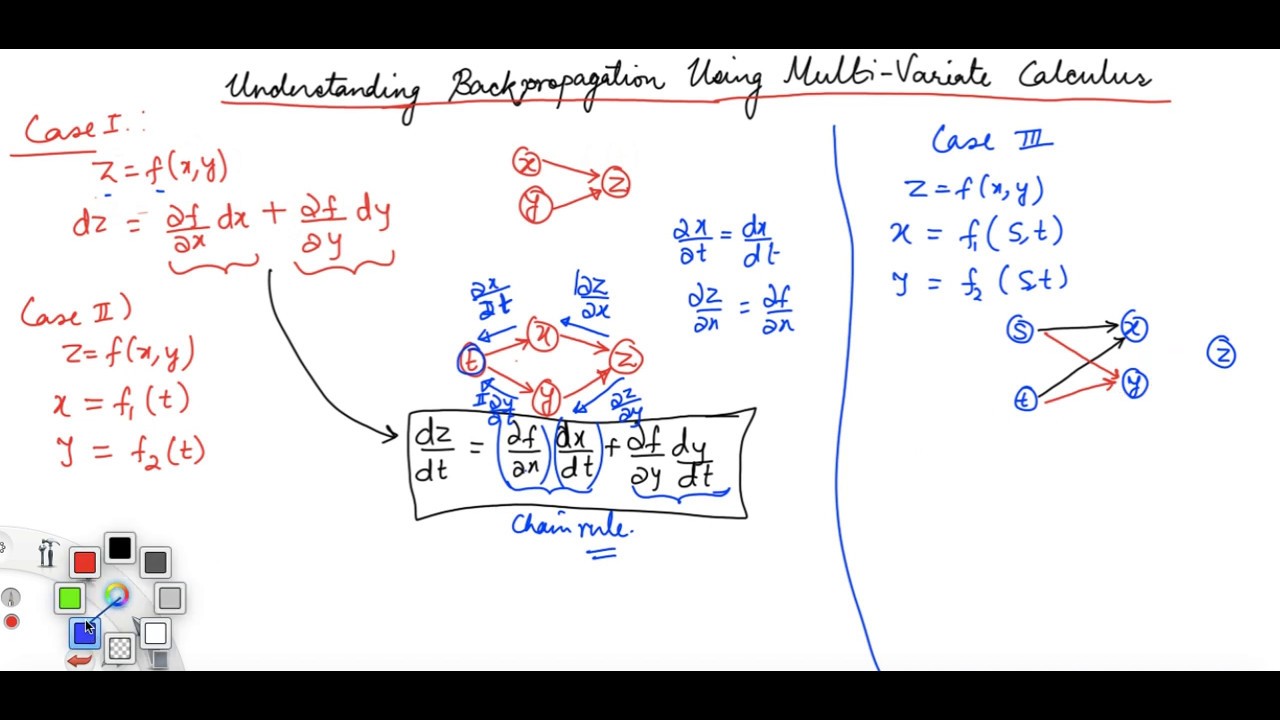 Understanding Backpropagation Using Multi-Variate Calculus
Case I :
z = f(x,y)
dz = ∂f/∂x dx + ∂f/∂y dy
x
y
z
Case II)
z = f(x,y)
x = f₁(t)
y = f₂(t)
∂x/∂t = dx/dt
∂z/∂x = ∂f/∂x
∂x/∂t
∂z/∂x
t
x
z
y
∂y/∂t
∂z/∂y
dz/dt = (∂f/∂x)(dx/dt) + ∂f/∂y dy/dt
Chain rule.
Case III
z = f(x,y)
x = f₁(s,t)
y = f₂(s,t)
s
x
z
t
y